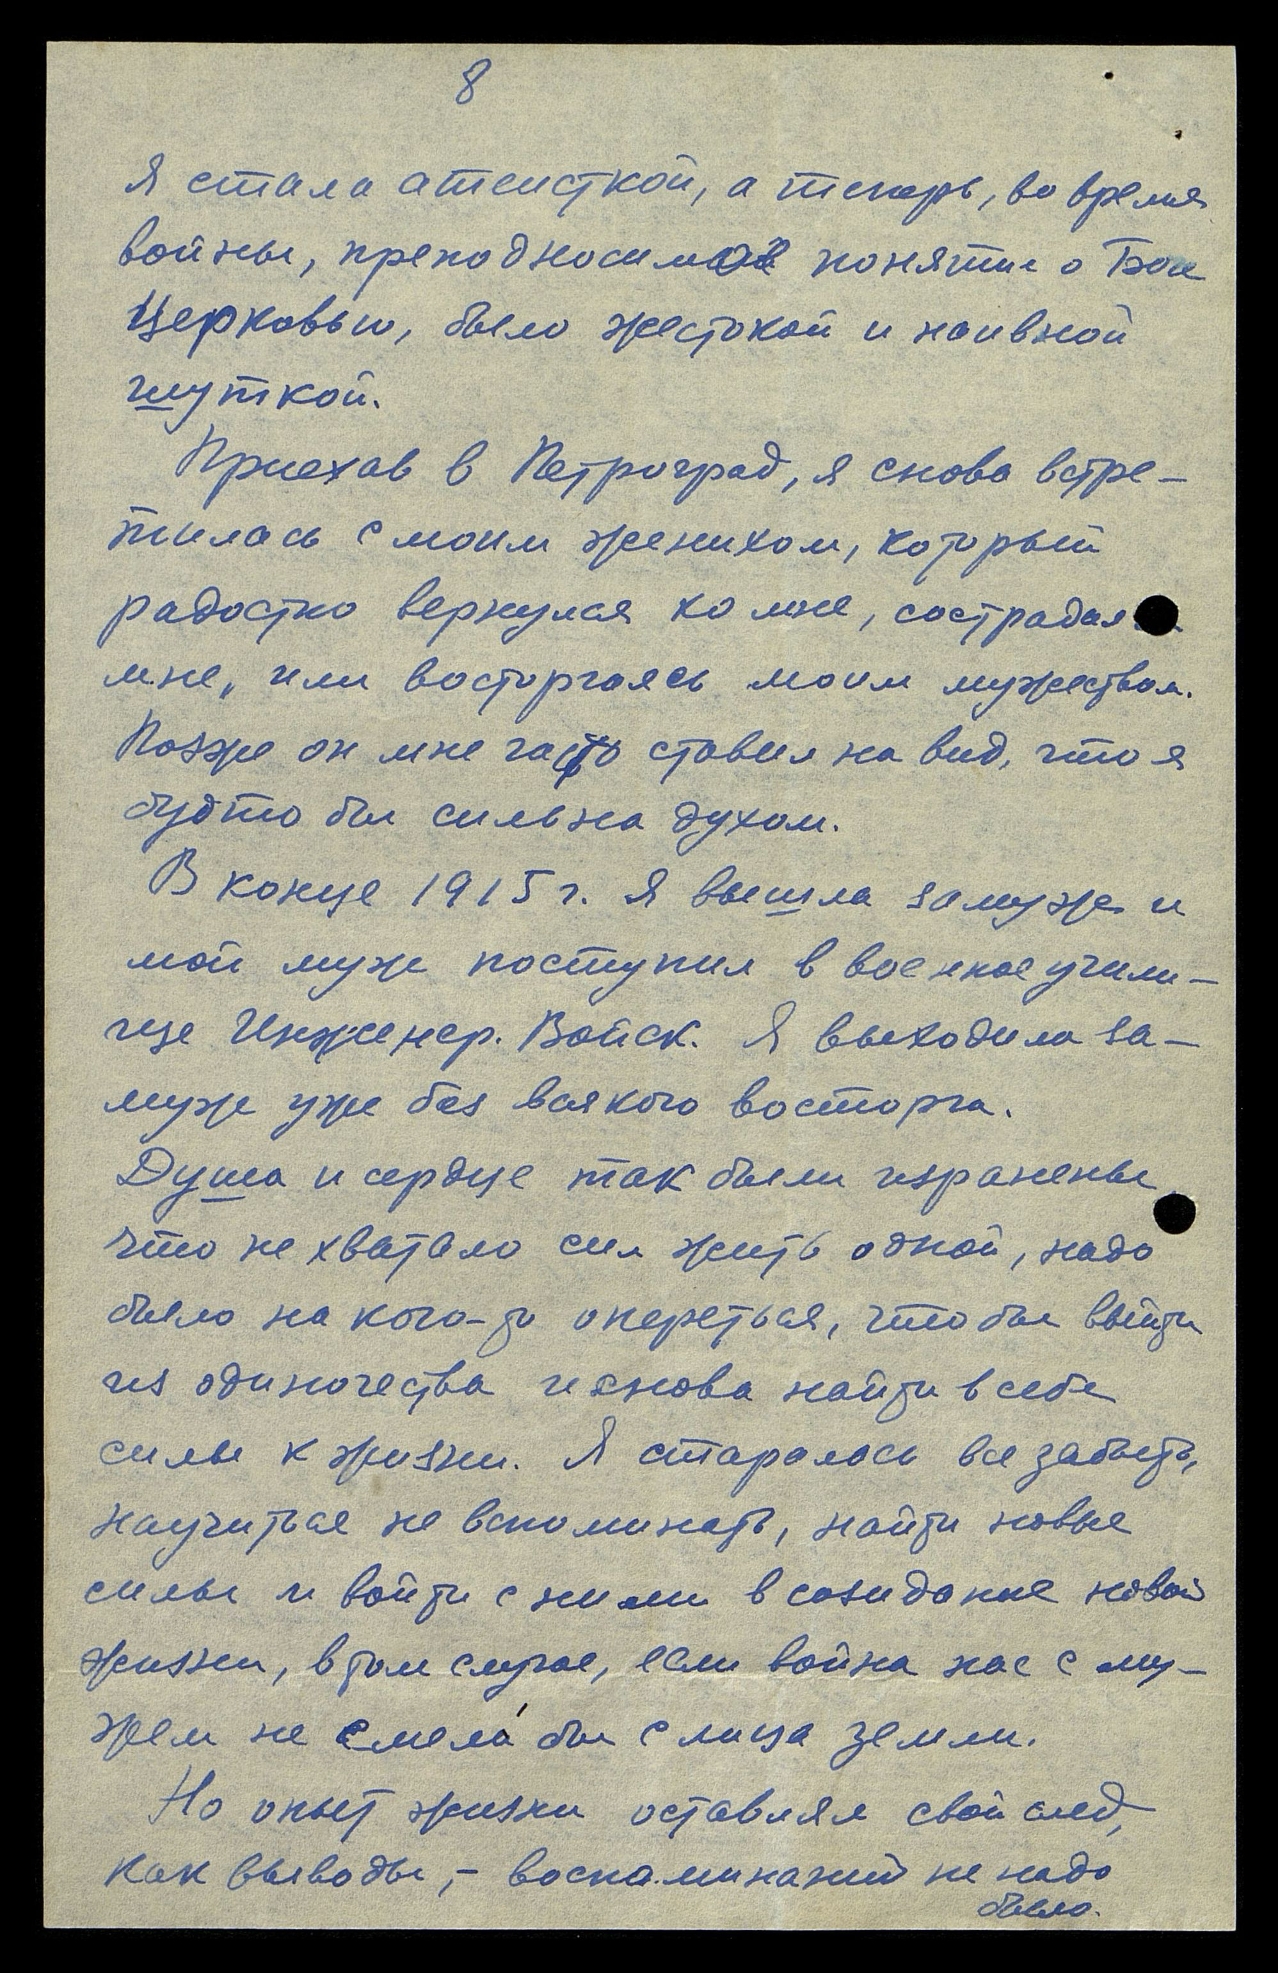 8
Я стала атеисткой, а теперь, во время
войны, преподносимое понятие о Боге
Церковью, было жестокой и наивной
шуткой.
Приехав в Петроград, я снова встре-
тилась с моим женихом, который
радостно вернулся ко мне, сострадая
мне, или восторгаясь моим мужеством.
Позже он мне часто ставил на вид, что я
будто бы сильна духом.
В конце 1915 г. я вышла замуж и
мой муж поступил в военное учили-
ще Инженер. Войск. Я выходила за-
муж уже без всякого восторга.
Душа и сердце так были изранены
что не хватало сил жить одной, надо
было на кого-то опереться, что бы выйти
из одиночества и снова найти в себе
силы к жизни. Я старалась все забыть,
научиться не вспоминать, найти новые
силы и войти с ними в созидание новой
жизни, в том случае, если война нас с му-
жем не смела́ бы с лица земли.
Но опыт жизни оставлял свой след,
как выводы, - воспоминаний не надо
было.